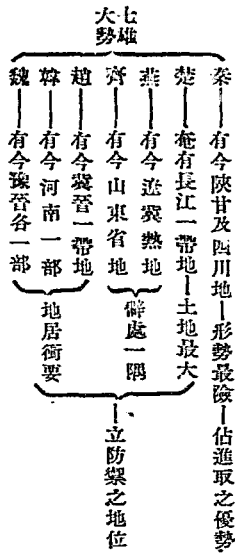 七雄
大勢
秦—有今陝甘及四川地—形勢最險—佔進取之優勢
楚—奄有長江一帶地—土地最大
燕—有今遼冀熱地
齊—有今山東省地
僻處一隅
趙—有今冀晉一帶地
韓—有今河南一部
魏—有今豫晉各一部
地居衝要
—立防禦之地位